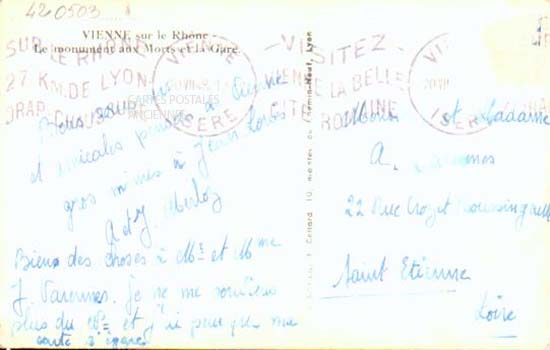 420503
VIENNE sur le Rhône
Le monument aux Morts et la Gare.
SUR LE RHÔNE
27 KM. DE LYON
DRAP-CHAUSSURE
VIENNE
ISERE
VISITEZ
VIENNE LA BELLE
CITE ROMAINE
VIENNE
ISERE
CARTES POSTALES
ANCIENNES
et amicales pensées
gros mimes à Jean Louis
A et J.
Bien des choses à Mr et Mme
J. Varennes. je ne me
plus du et j'ai peur que ma
carte s'égare
Cellard
Lyon
et Madame
A. Varennes
22 Rue Crozet Boussingault
Saint Etienne
Loire